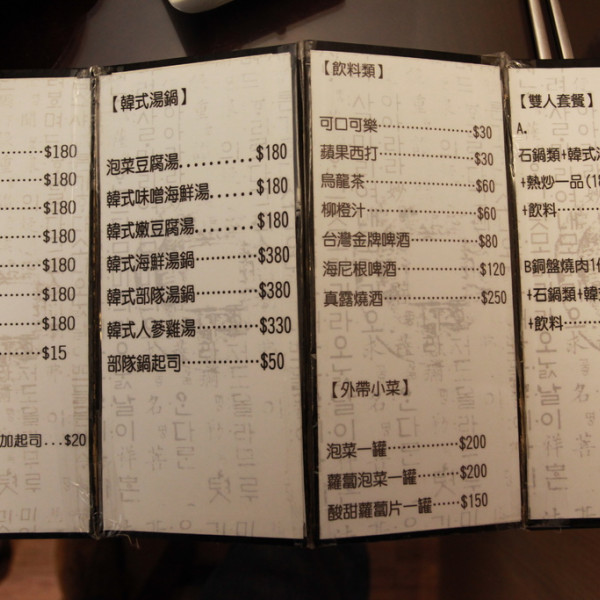 $180
$180
$180
$180
$180
$180
$180
$15
加起司...$20
【韓式湯鍋】
泡菜豆腐湯.........$180
韓式味噌海鮮湯......$180
韓式嫩豆腐湯........$180
韓式海鮮湯鍋........$380
韓式部隊湯鍋........$380
韓式人蔘雞湯........$330
部隊鍋起司..........$50
【飲料類】
可口可樂............$30
蘋果西打............$30
烏龍茶..............$60
柳橙汁..............$60
台灣金牌啤酒........$80
海尼根啤酒..........$120
真露燒酒............$250
【外帶小菜】
泡菜一罐............$200
蘿蔔泡菜一罐........$200
酸甜蘿蔔片一罐......$150
【雙人套餐】
A.
石鍋類+韓式
+熱炒一品(18
+飲料
B銅盤燒肉1
+石鍋類+韓
+飲料